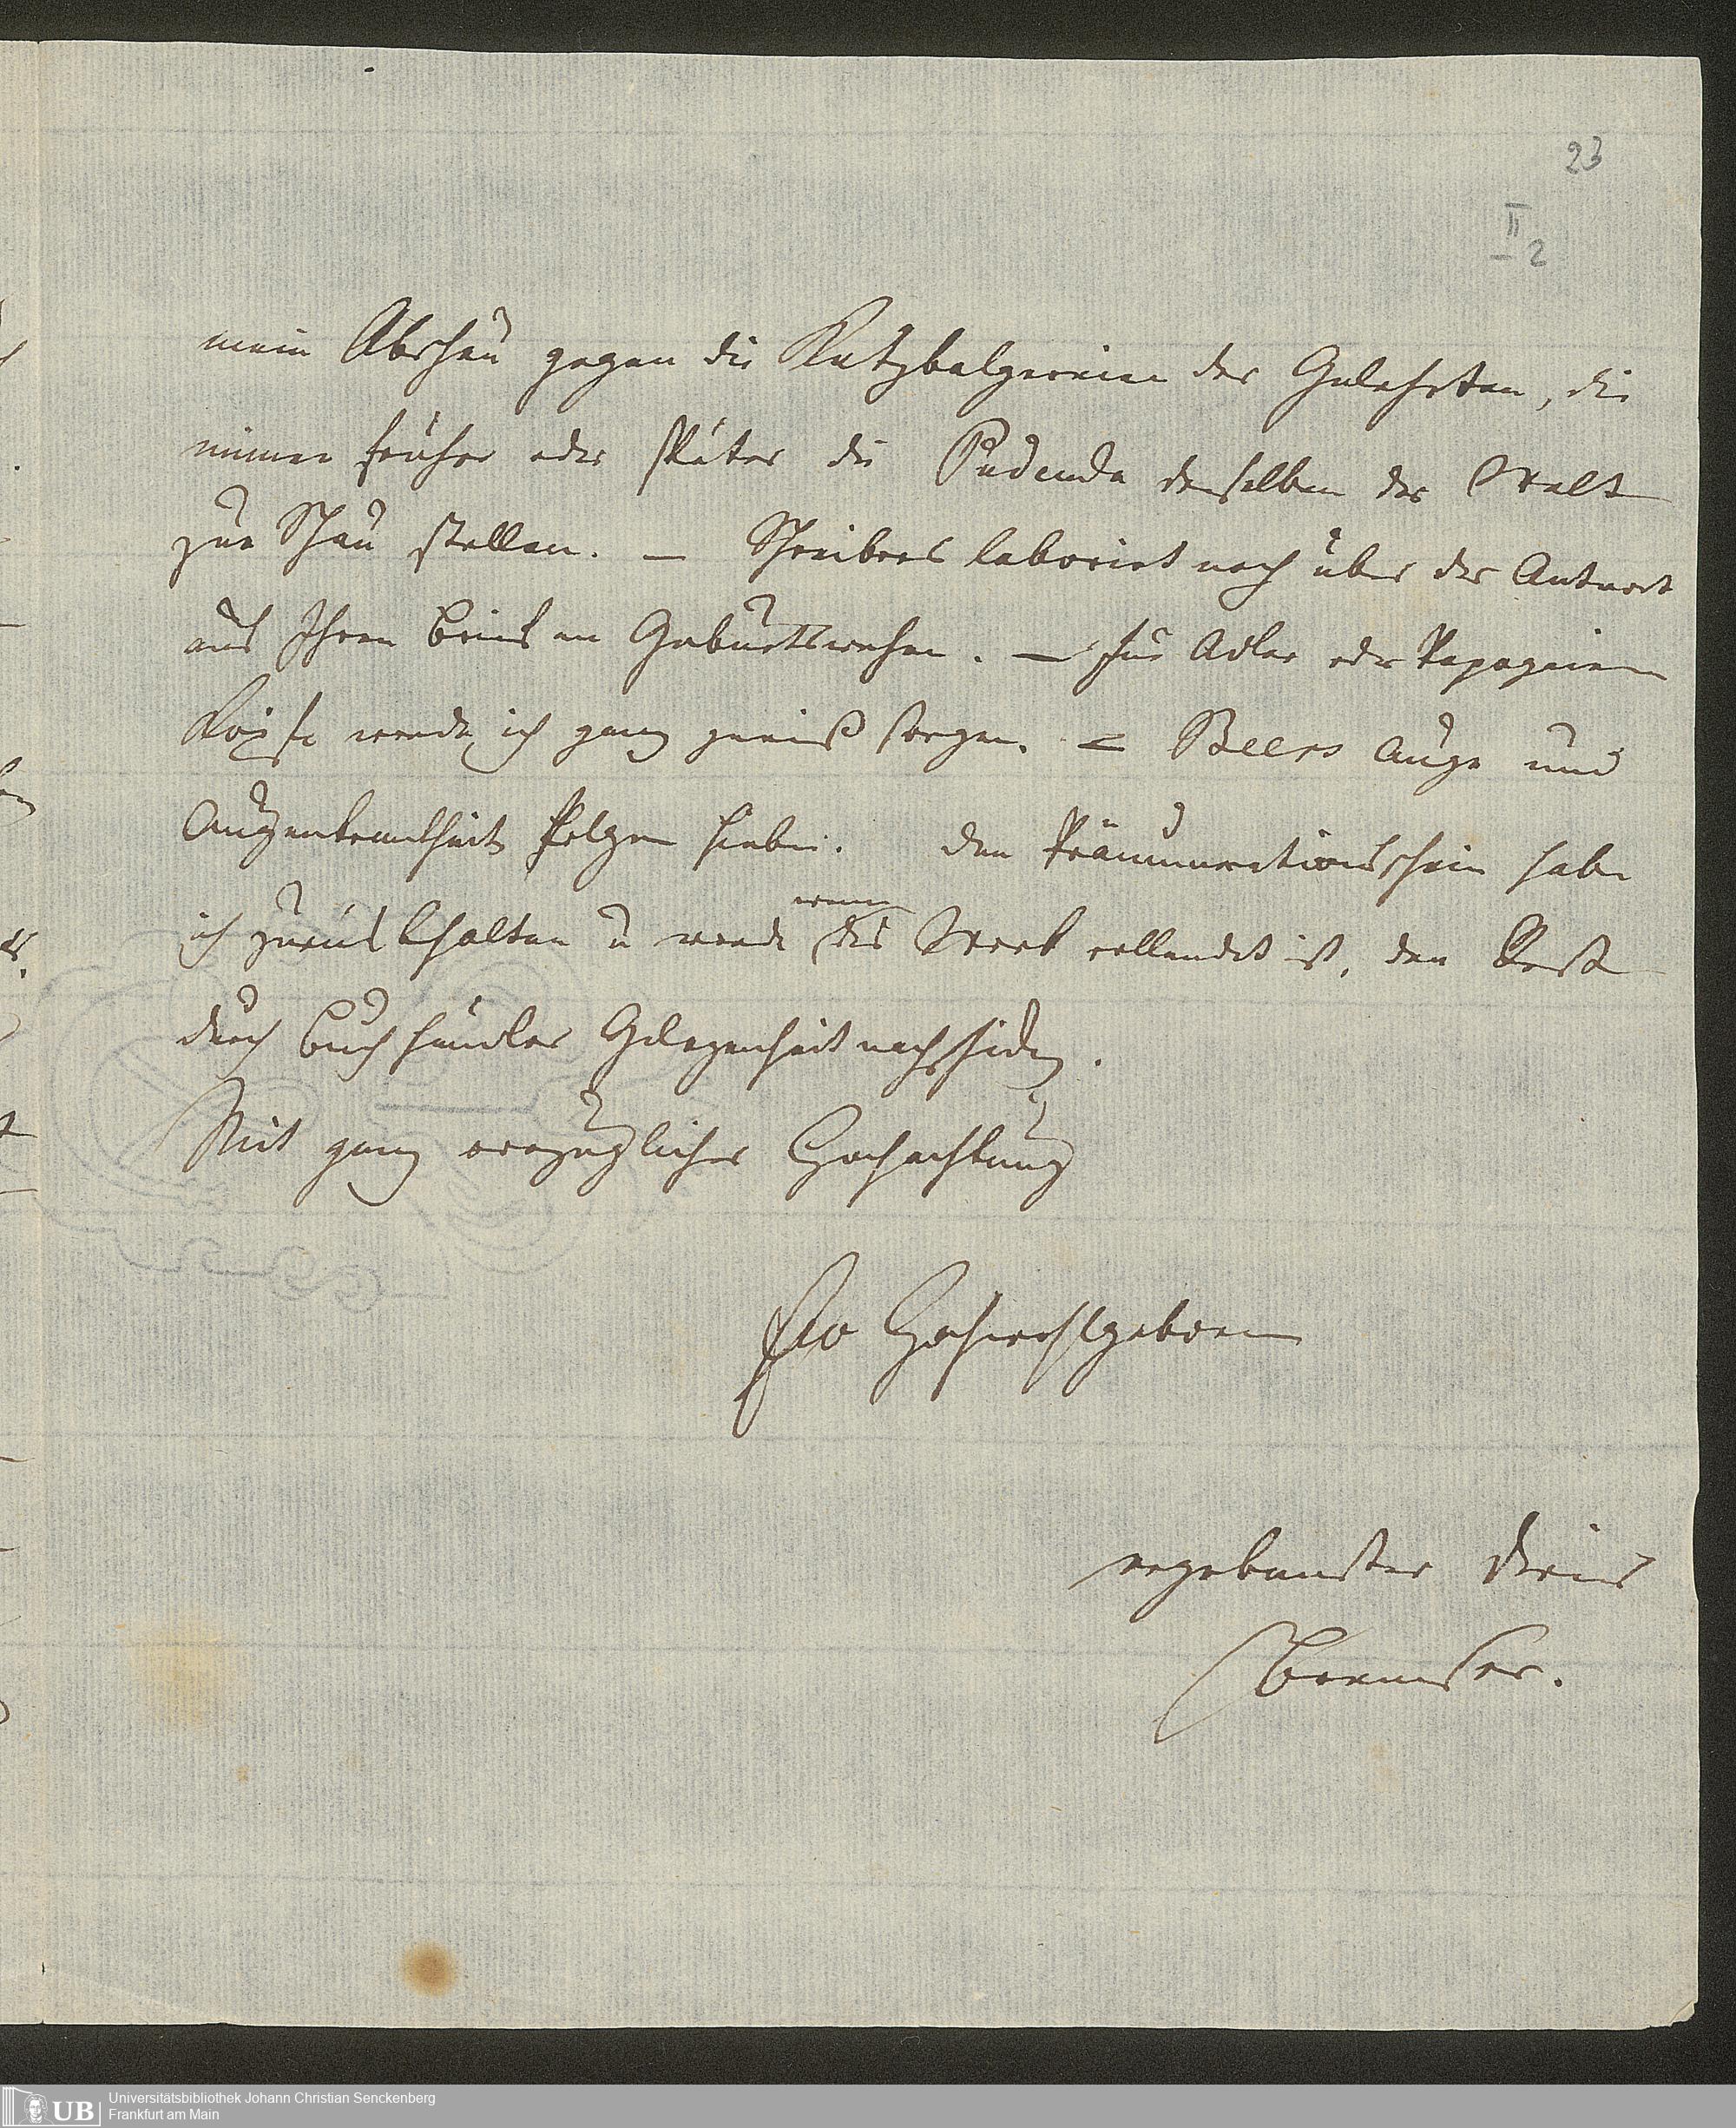 23
II
2
mein Abscheu gegen die Katzbalgereien der Gelehrten, die
immer früher oder später die Pudenda derselben der Welt
zur Schau stellen. — Schreibers laborirt noch über der Antwort
auf Ihren Brief an Geburtswehen. — Für Adler oder Papageien
Köpfe werde ich ganz gewiß sorgen. — Beers Auge und
Augenkrankheit folgen hiebei. Den Pränumerationsschein habe
ich zurückbehalten u werde wenn das Werk vollendet ist, den Rest
durch Buchhändler Gelegenheit nachschicken.
Mit ganz vorzüglicher Hochachtung
Ew Hochwohlgeboren
ergebenster Diener
Bremser.
UB
Universitätsbibliothek Johann Christian Senckenberg
Frankfurt am Main